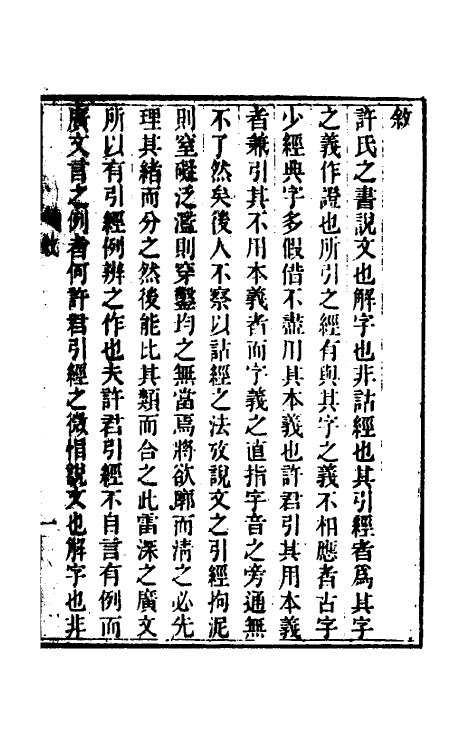 敘
許氏之書說文也解字也非詁經也其引經者爲其字
之義作證也所引之經有與其字之義不相應者古字
少經典字多假借不盡用其本義也許君引其用本義
者兼引其不用本義者而字義之直指字音之旁通無
不了然矣後人不察以詁經之法攷說文之引經拘泥
則窒礙泛濫則穿鑿均之無當焉將欲廓而淸之必先
理其緒而分之然後能比其類而合之此雷深之廣文
所以有引經例辨之作也夫許君引經不自言有例而
廣文言之例者何許君引經之微恉說文也解字也非
敘
一